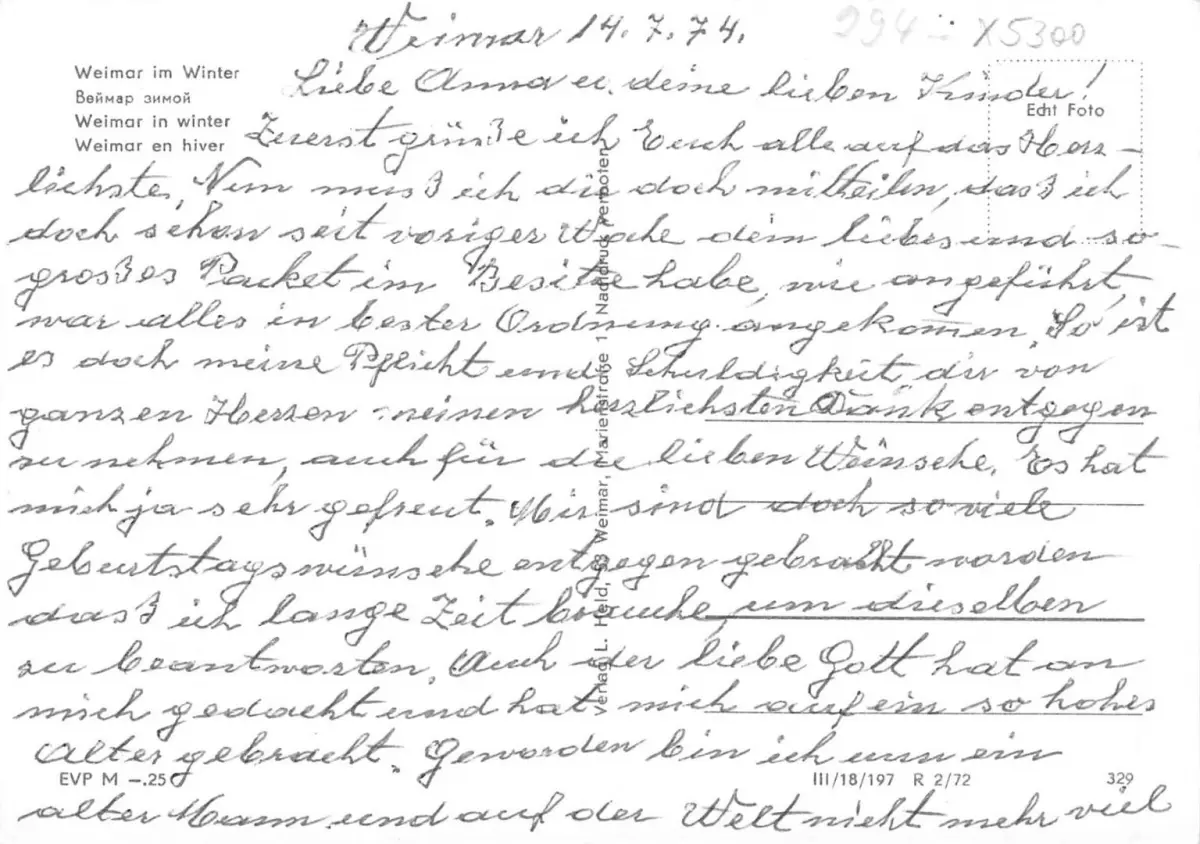 Weimar 14.7.74.
294 X5300
Weimar im Winter
Веймар зимой
Weimar in winter
Weimar en hiver
Echt Foto
Liebe Anna u. deine lieben Kinder!
Zuerst grüße ich Euch alle auf das Herz-
lichste, Nun muß ich dir doch mitteilen, daß ich
doch schon seit voriger Woche dein liebes und so
großes Packet im Besitze habe, wie angeführt,
war alles in bester Ordnung angekomen. So ist
es doch meine Pflicht und Schuldigkeit, dir von
ganzen Herzen meinen herzlichsten Dank entgegen
zu nehmen, auch für die lieben Wünsche. Es hat
mich ja sehr gefreut. Mir sind doch so viele
Geburtstagswünsche entgegen gebracht worden
daß ich lange Zeit brauche, um dieselben
zu beantworten. Auch der liebe Gott hat an
mich gedacht und hat mich auf ein so hohes
Alter gebracht. Geworden bin ich nun ein
alter Mann und auf der Welt nicht mehr viel
Verlag L. Held, 53 Weimar, Marienstraße 1 Nachdruck verboten
EVP M –.25
III/18/197 R 2/72
329